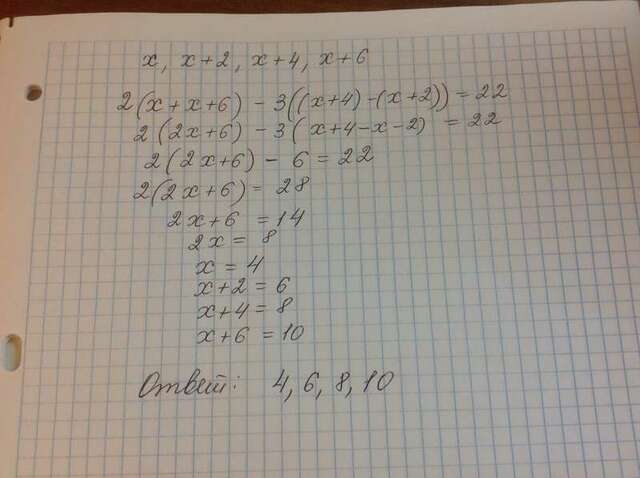 x, x+2, x+4, x+6
2(x+x+6) - 3((x+4)-(x+2)) = 22
2(2x+6) - 3(x+4-x-2) = 22
2(2x+6) - 6 = 22
2(2x+6) = 28
2x+6 = 14
2x = 8
x = 4
x+2 = 6
x+4 = 8
x+6 = 10
Ответ: 4, 6, 8, 10